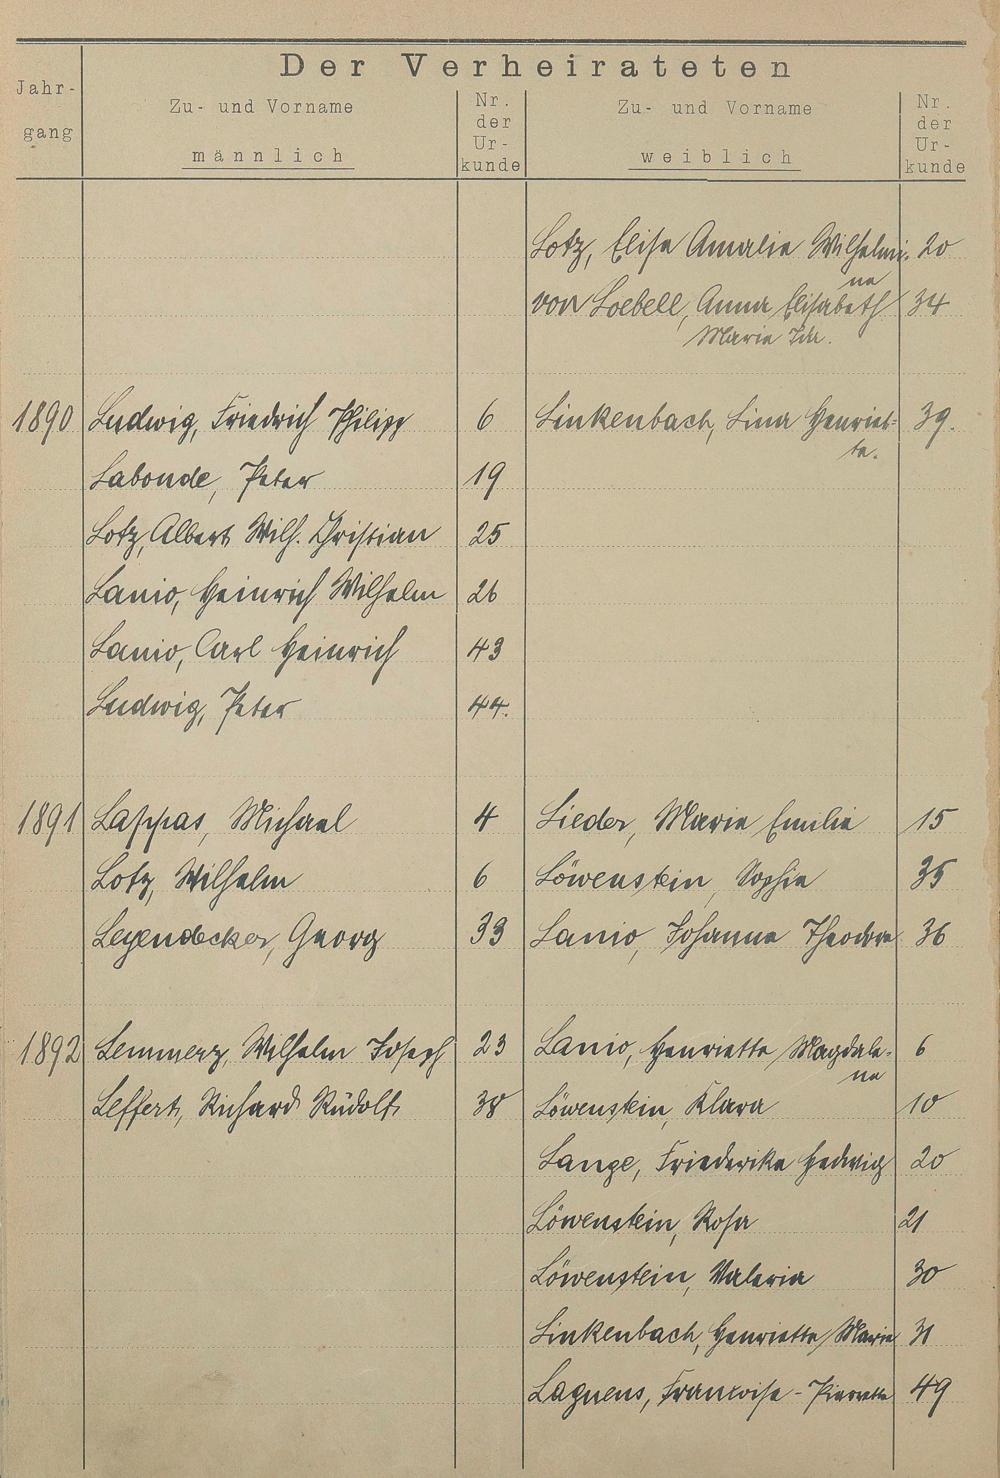 Der Verheirateten
Jahr-
gang
Zu- und Vorname
männlich
Nr.
der
Ur-
kunde
Zu- und Vorname
weiblich
Nr.
der
Ur-
kunde
Lotz, Elise Amalie Wilhelmi- 20
ne
von Loebell, Anna Elisabeth 34
Marie Ida.
1890 Ludwig, Friedrich Philipp 6 Linkenbach, Lina Henriet- 39.
te.
Labonde, Peter 19
Lotz, Albert Wilh. Christian 25
Lanio, Heinrich Wilhelm 26
Lanio, Carl Heinrich 43
Ludwig, Peter 44.
1891 Lappas, Michael 4 Lieder, Marie Emilie 15
Lotz, Wilhelm 6 Löwenstein, Sophie 35
Leyendecker, Georg 33 Lanio, Johanna Theodora 36
1892 Lemmerz, Wilhelm Joseph 23 Lanio, Henriette Magdale- 6
ne
Leffert, Richard Rudolf 38 Löwenstein, Klara 10
Lange, Friederika Hedwig 20
Löwenstein, Rosa 21
Löwenstein, Valeria 30
Linkenbach, Henriette Marie 31
Laguens, Francoise-Pierrette 49